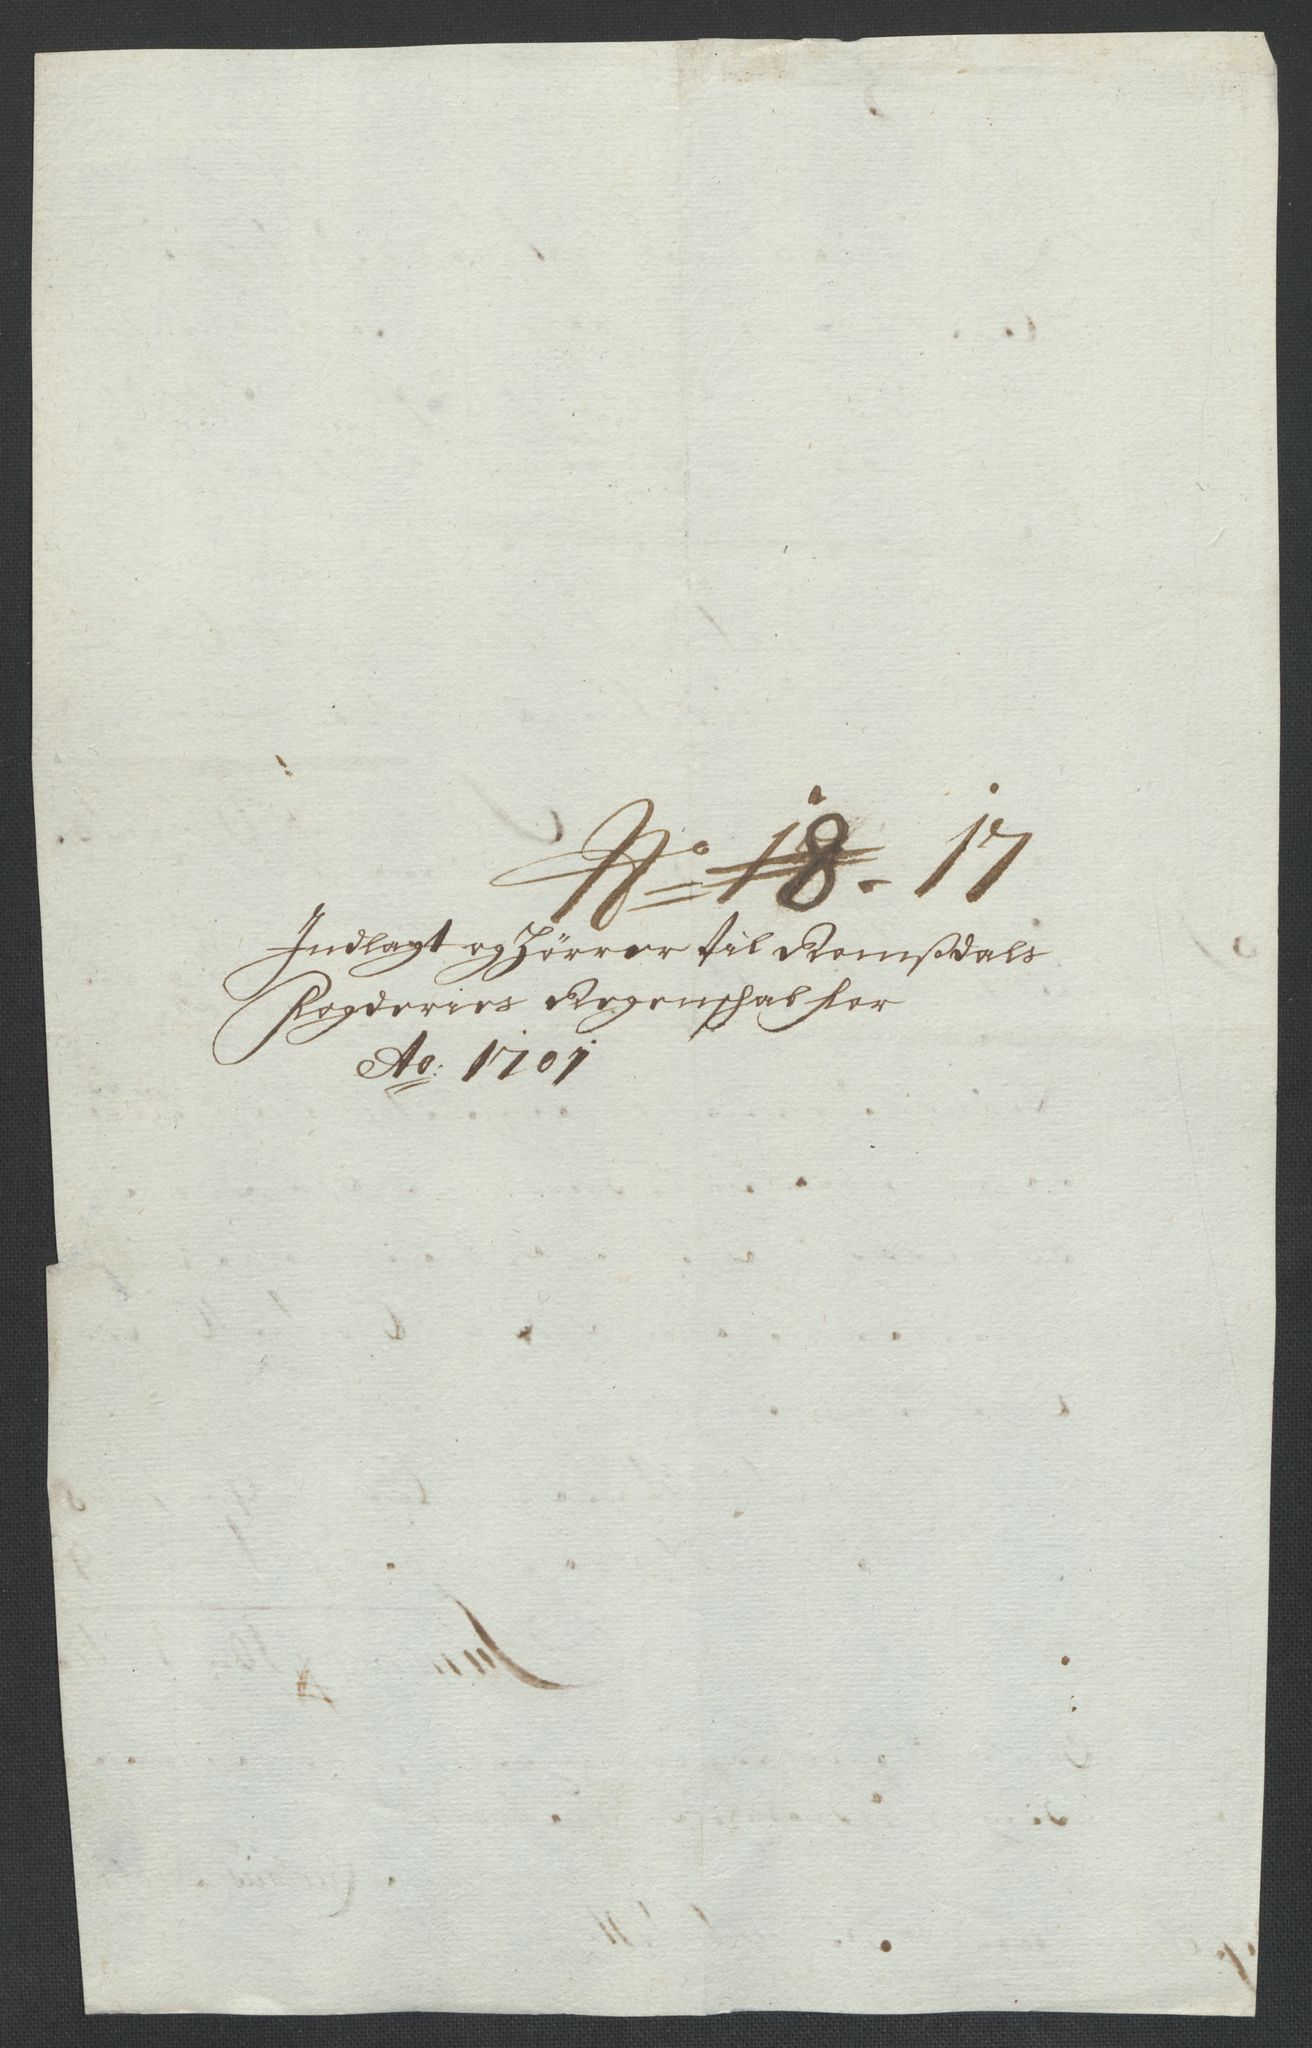 No 18. 17
Indlagt og Hörrer til Romßdals
Fogderies Regenschab for
Ao: 1701